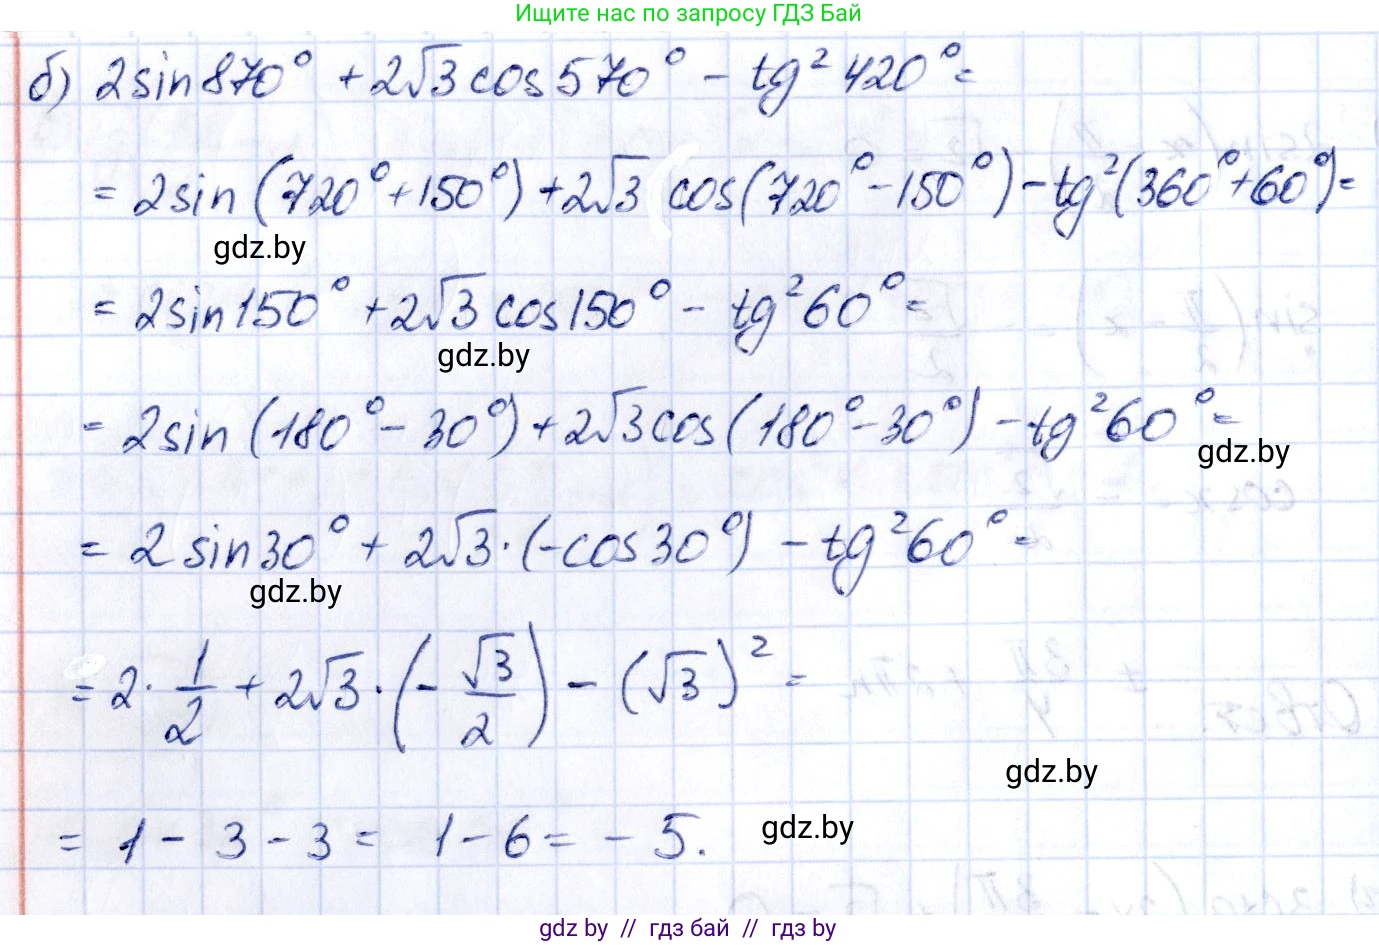 Ищите нас по запросу ГДЗ Бай
б) 2sin870° + 2√3cos570° - tg²420° =
= 2sin(720°+150°)+2√3 cos(720°-150°)-tg²(360°+60°)=
gdz.by
= 2sin150° + 2√3cos150° - tg²60° =
gdz.by
= 2sin(180°-30°)+2√3cos(180°-30°) - tg²60° =
gdz.by
= 2sin30° + 2√3·(-cos30°) - tg²60° =
gdz.by
= 2·1/2 + 2√3·(-√3/2) - (√3)² =
gdz.by
= 1-3-3 = 1-6 = -5.
gdz.by
gdz.by // гдз бай // гдз by